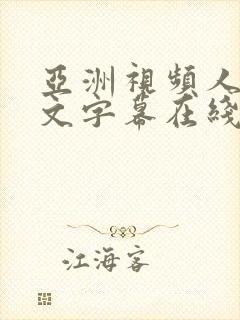 亞洲視頻人
文字幕在綫
江海客